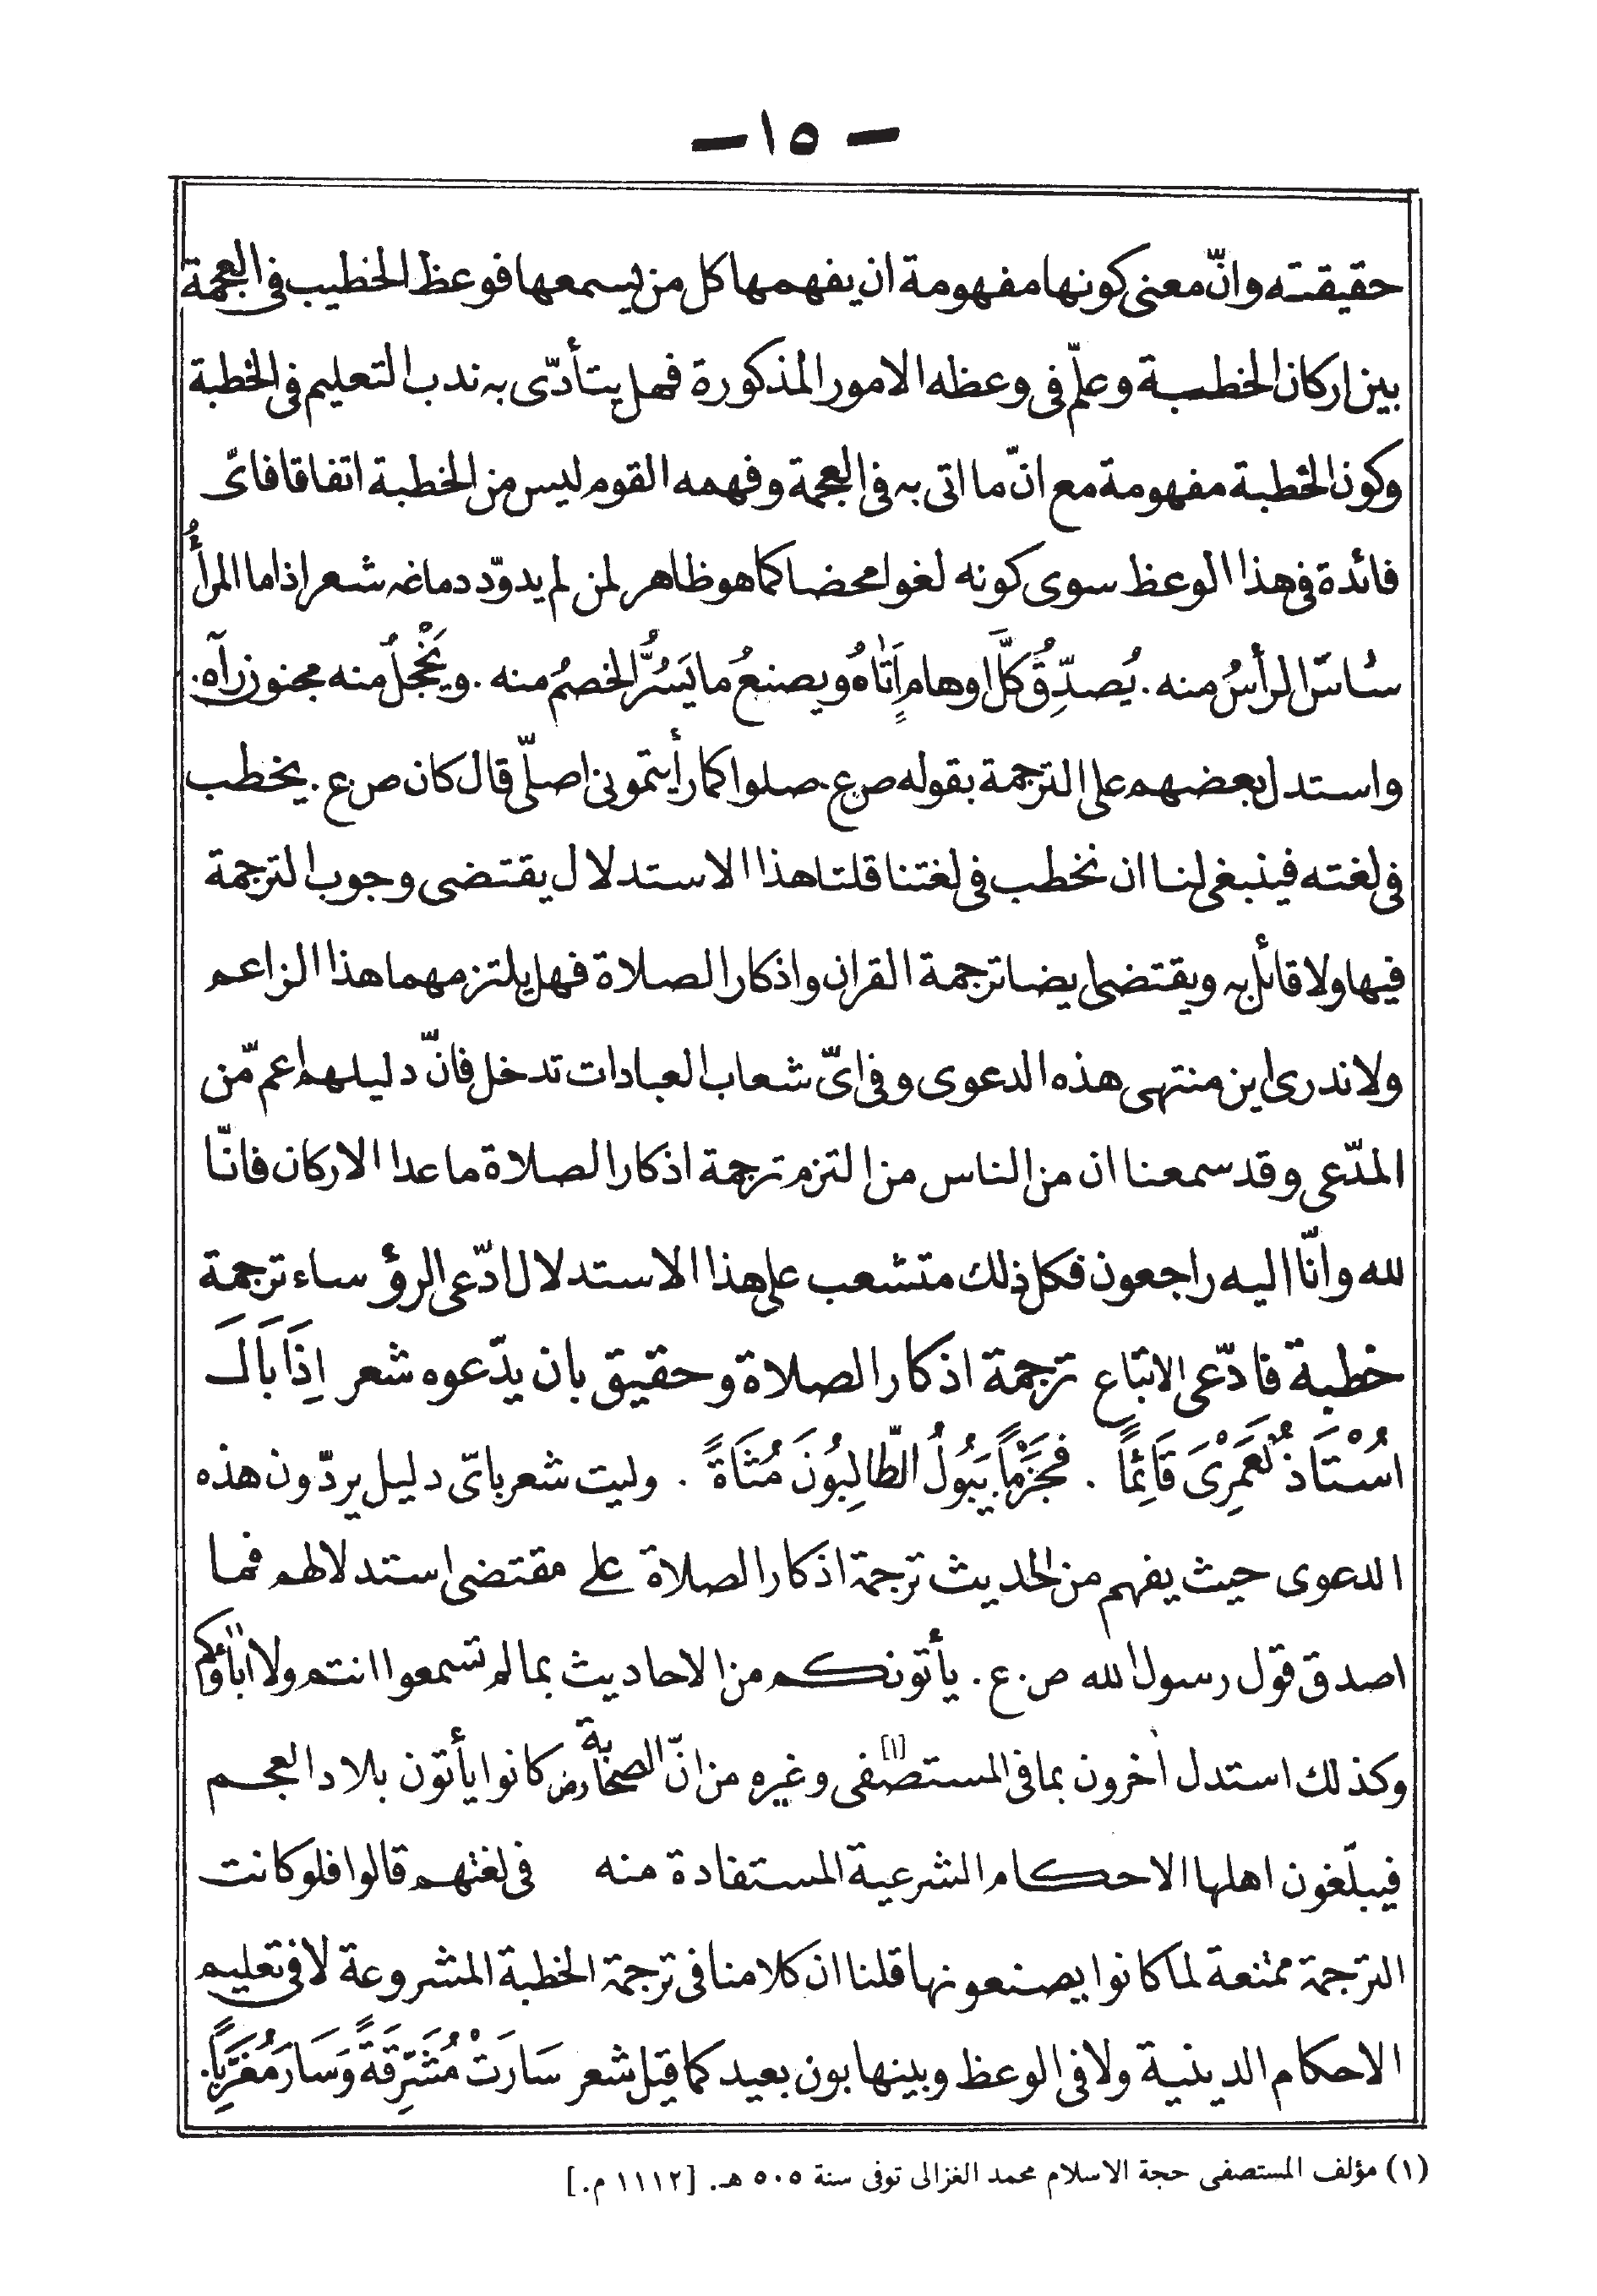 — ١٥ —
حقيقته وانّ معنى كونها مفهومة ان يفهمها كل من يسمعها فوعظ الخطيب فى العجمة
بين اركان الخطبة وعلّم فى وعظه الامور المذكورة فهل يتأدّى به ندب التعليم فى الخطبة
وكون الخطبة مفهومة مع انّ ما اتى به فى العجمة وفهمه القوم ليس من الخطبة اتفاقا فاىّ
فائدة فى هذا الوعظ سوى كونه لغوا محضا كما هو ظاهر لمن لم يدوّد دماغه شعر اذا ما المرأُ
سُاسَ الرأسُ منه . يُصدّقُ كلَّ اوهامٍ اَتَاهُ ويصنعُ ما يَسُرُّ الخصمُ منه . ويَخْجلُ منه مجنون رآه .
واستدل بعضهم على الترجمة بقوله ص.ع. صلوا كما رأيتمونى اصلّى قال كان ص ع . يخطب
فى لغته فينبغى لنا ان نخطب فى لغتنا قلتا هذا الاستدلال يقتضى وجوب الترجمة
فيها ولا قائل به ويقتضى ايضا ترجمة القران واذكار الصلاة فهل يلتزمهما هذا الزاعم
ولا ندرى اين منتهى هذه الدعوى وفى اىّ شعاب العبادات تدخل فانّ دليلهم اعم مّن
المدّعى وقد سمعنا ان من الناس من التزم ترجمة اذكار الصلاة ما عدا الاركان فانّا
لله وانّا اليه راجعون فكل ذلك متشعب على هذا الاستدلال ادّعى الرؤساء ترجمة
خطبة فادّعى الاتباع ترجمة اذكار الصلاة وحقيق بان يدّعوه شعر اِذَا بَالَ
اُسْتَاذٌ لَعَمْرِىَ قَائِمًا . فجَزْمًا يَبُولُ الطَّالِبُونَ مُثَاةً . وليت شعر باىّ دليل يردّون هذه
الدعوى حيث يفهم من الحديث ترجمة اذكار الصلاة على مقتضى استدلالهم فما
اصدق قول رسول الله ص . ع . يأتونكم من الاحاديث بما لم تسمعوا انتم ولا اباؤكم
وكذلك استدل اخرون بما فى المستصفى [١] وغيره من انّ الصحابة رض كانوا يأتون بلاد العجم
فيبلّغون اهلها الاحكام الشرعية المستفادة منه فى لغتهم قالوا فلو كانت
الترجمة ممتنعة لما كانوا يصنعونها قلنا ان كلامنا فى ترجمة الخطبة المشروعة لا فى تعليم
الاحكام الدينية ولا فى الوعظ وبينها بون بعيد كما قيل شعر سَارَتْ مُشَرِّقَةً وَسَارَ مُغَرِّبًا .
(١) مؤلف المستصفى حجة الاسلام محمد الغزالى توفى سنة ٥٠٥ هـ. [١١١٢ م.]